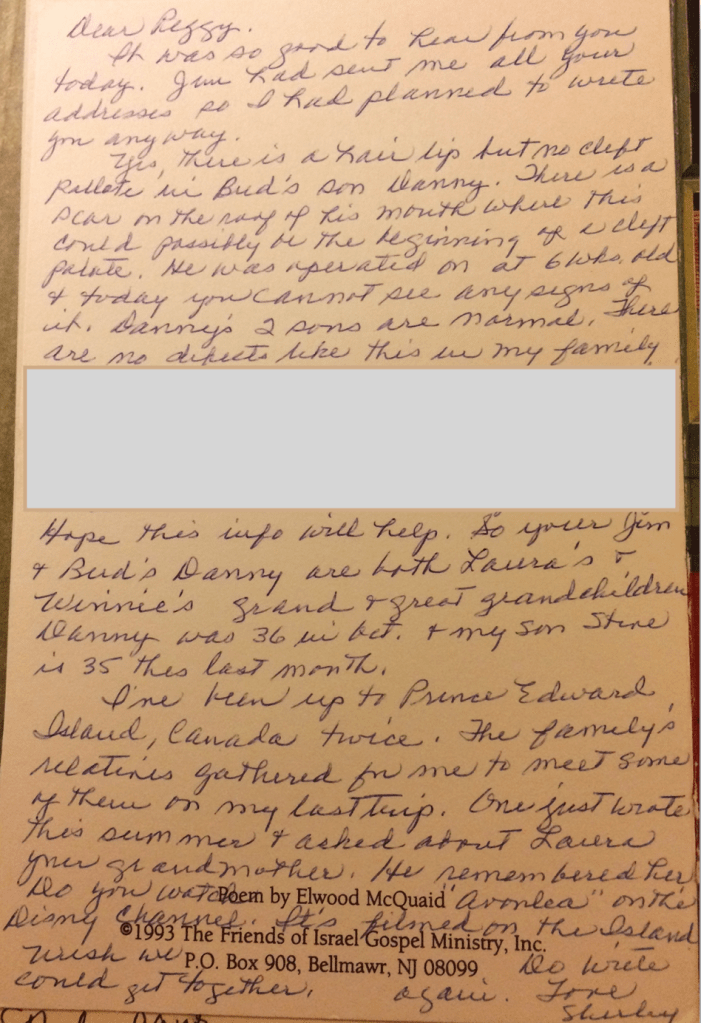 Dear Peggy.
It was so good to hear from you
today. Jim had sent me all your
addresses so I had planned to write
you anyway.
Yes, there is a hair lip but no cleft
pallete in Bud's son Danny. There is a
scar on the roof of his mouth where this
could possibly be the beginning of a cleft
palate. He was operated on at 6 wks. old
& today you cannot see any signs of
it. Danny's 2 sons are normal. There
are no defects like this in my family
Hope this info will help. So your Jim
& Bud's Danny are both Laura's &
Winnie's grand & great grandchildren
Danny was 36 in Oct. & my son Steve
is 35 this last month.
I've been up to Prince Edward
Island, Canada twice. The family's
relatives gathered for me to meet some
of them on my last trip. One just wrote
this summer & asked about Laura
your grandmother. He remembered her
Do you watch "Avonlea" on the
Poem by Elwood McQuaid
Disny Channel. It's filmed on the Island
©1993 The Friends of Israel Gospel Ministry, Inc.
Wish we Do write
P.O. Box 908, Bellmawr, NJ 08099
could get together. again. Love
Shirley